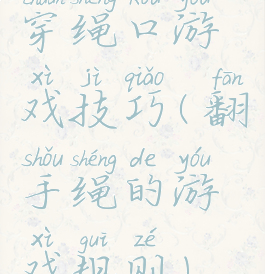 chuān shéng kǒu yóu
穿绳口游
xì jì qiǎo fān
戏技巧(翻
shǒu shéng de yóu
手绳的游
xì guī zé
戏规则)